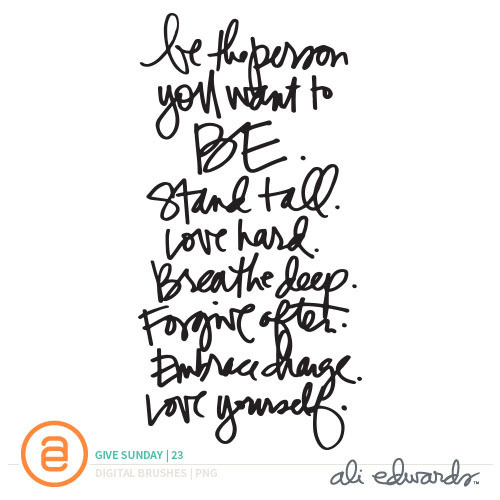 be the person
you want to
BE.
Stand tall.
Love hard.
Breathe deep.
Forgive often.
Embrace change.
Love yourself.
ae
GIVE SUNDAY | 23
DIGITAL BRUSHES | PNG
ali edwards™